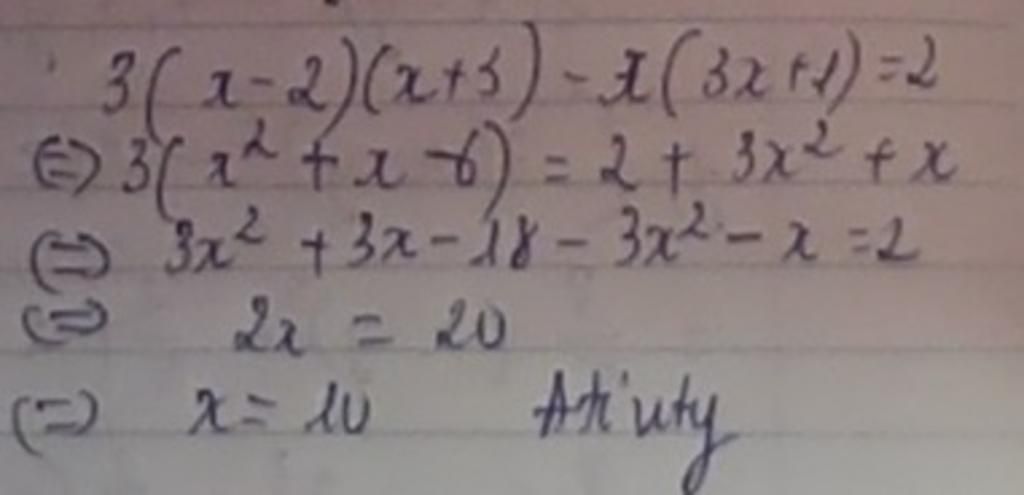 3(x-2)(x+3)-x(3x+1)=2
⇔ 3(x²+x-6)=2+3x²+x
⇔ 3x²+3x-18-3x²-x=2
⇔ 2x=20
⇔ x=10